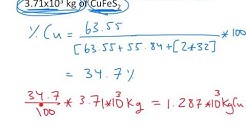 3.71x10³ kg of CuFeS₂
% Cu = 63.55 / [63.55+55.84+[2*32] *100
= 34.7%
34.7/100 * 3.71*10³Kg = 1.287*10³KgCu